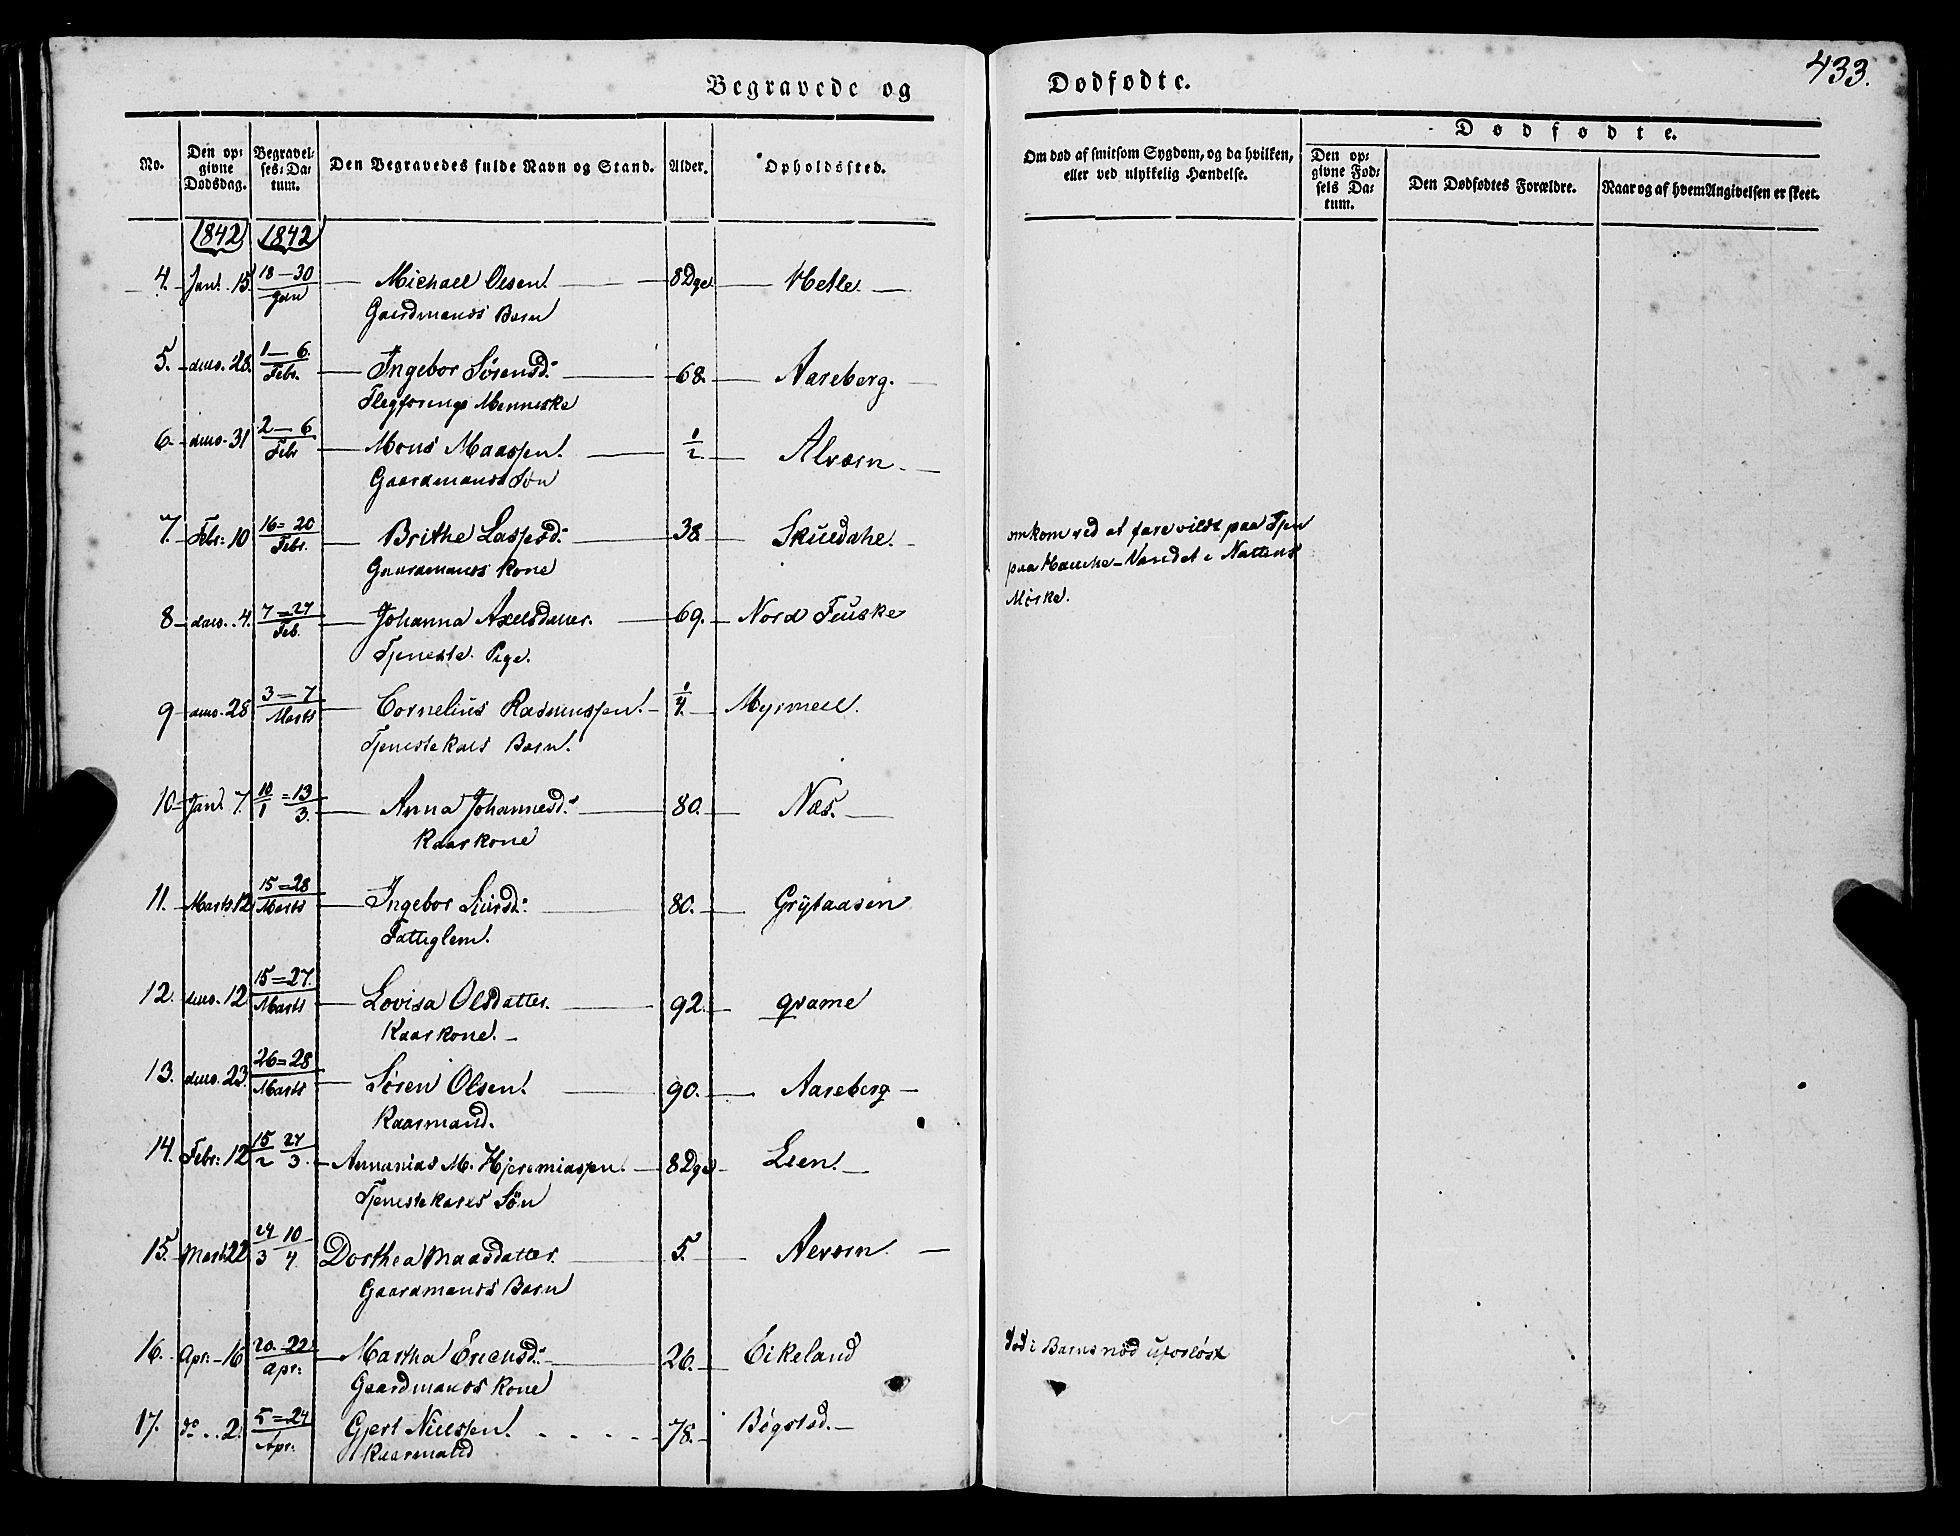 433.
Begravede og Dødfødte.
No. Den opgivne Dødsdag. Begravelses-Datum. Den Begravedes fulde Navn og Stand. Alder. Opholdssted. Om død af smitsom Sygdom, og da hvilken, eller ved ulykkelig Hændelse. Dødfødte. Den opgivne Fødsels Datum. Den Dødfødtes Forældre. Naar og af hvem Angivelsen er skeet.
1842 1842
4. Jan. 15 18–30 Jan Michael Olsen. 8 Dge Hetle.
Gaardmands Barn
5. dno. 28. 1–6. Febr. Ingebor Sørensd. 68. Aareberg.
Menneske
6. dno. 31 2–6 Febr Mons Maassen. 1/2 Alværn.
Gaardmands Søn
7. Febr. 10 16=20 Febr. Brithe Lassesd. 38. omkom ved at fare vildt paa
Gaardmands Kone paa Vandet i Nattens
Mørke.
8 dno. 4. 7=27 Feb. Johanna Axelsdatter. 69. Nord
Tjeneste Pige.
9 dno. 28 3=7 Marts Cornelius Rasmussen. 1/4.
Tjenestekarls Barn.
10 Jan. 7. 10/1 = 13/3. Anna Johannesd. 80. Næs.
Kaarkone
11. Marts 12 15=28 Marts Ingebor 80. Grytaasen
Fattiglem.
12. dno. 12. 15=27. Marts Lovisa Olsdatter. 92. qvame
Kaarkone.
13. dno. 23. 26=28 Marts Søren Olsen. 90. Aareberg
Kaarmand.
14. Febr. 12 15/2 27/3. Annanias M. Hjeremiassen. 8 Dge Lien.
Tjenestekarls Søn
15. Mart. 22 24/3 10/4. Dorthea Maasdatter. 5. Alværn
Gaardmands Barn
16. Apr. 16 20–22 Apr. Martha Ericksd. 26. Eikeland død i Barnsnød uforløst
Gaardmands Kone
17. do. 2. 5=24 Apr. Gjert Nielssen. 78. Bøgstad.
Kaarmand